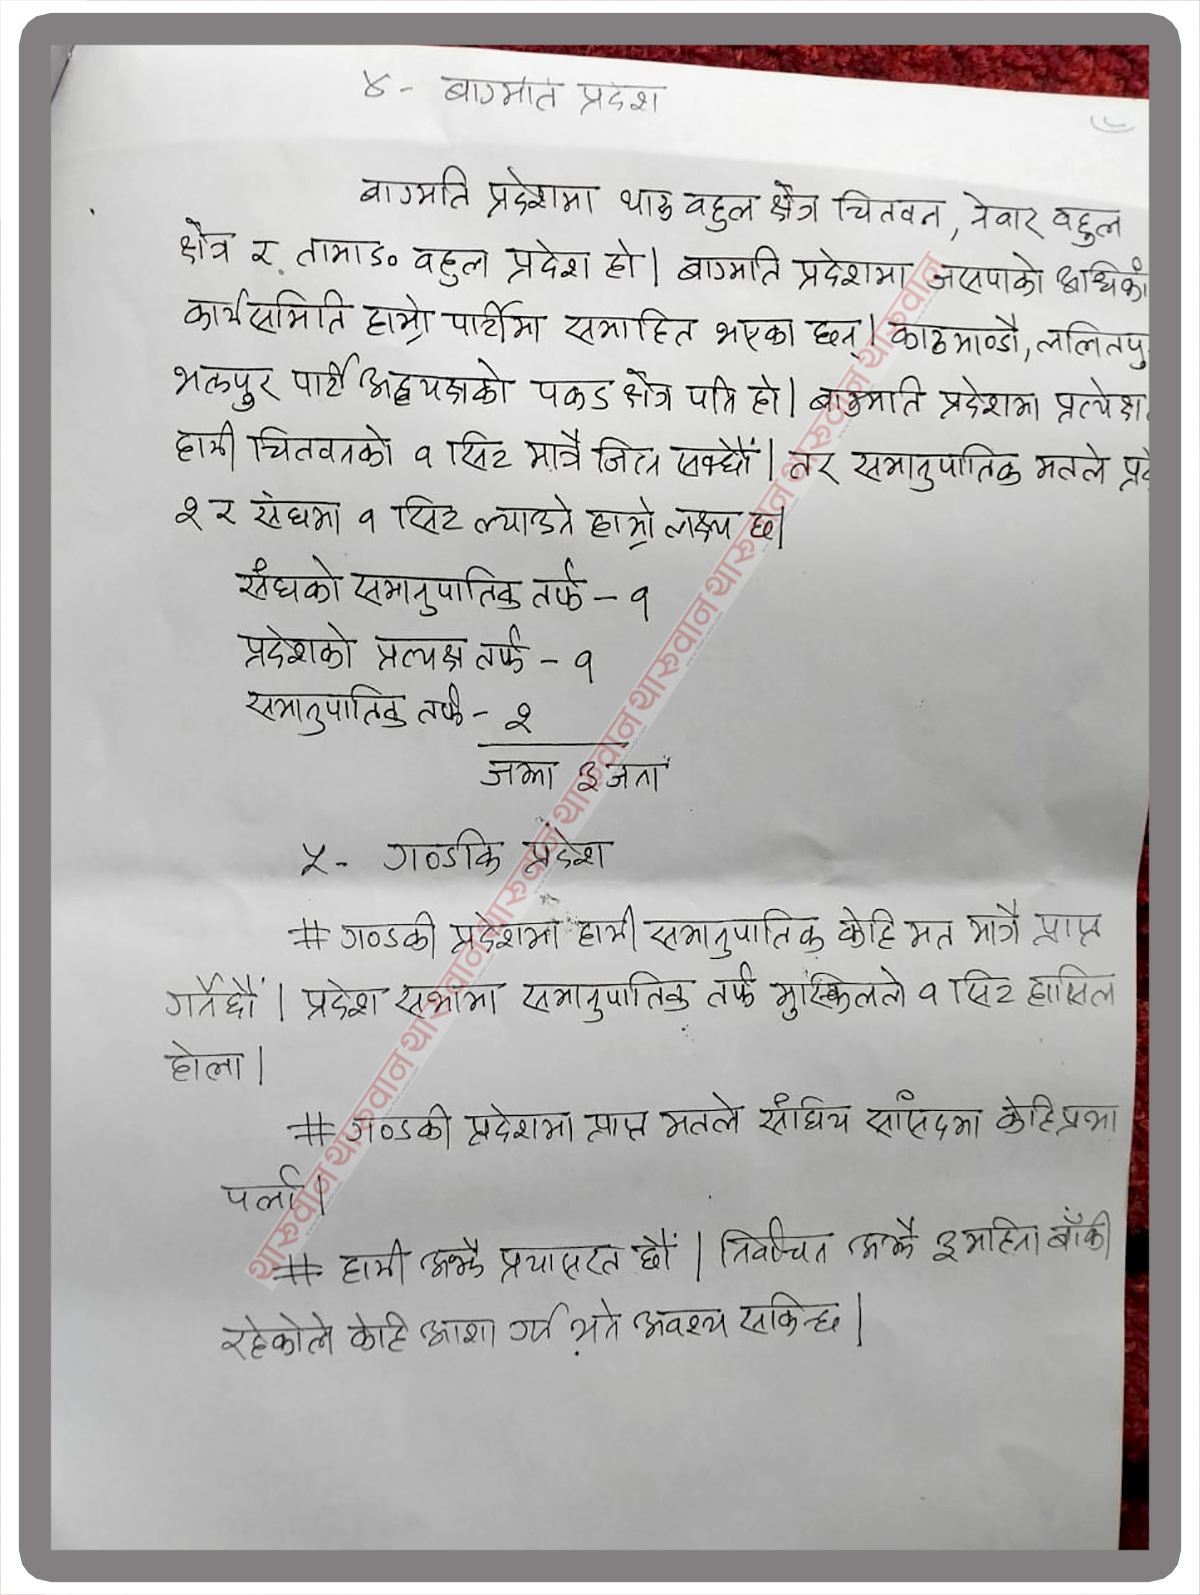 ४- बागमति प्रदेश
बागमति प्रदेशमा थारु बहुल क्षेत्र चितवन, नेवार बहुल
क्षेत्र र तामाङ बहुल प्रदेश हो। बागमति प्रदेशमा जसपाको
कार्यसमिति हाम्रो पार्टीमा समाहित भएका छन्। काठमाण्डौ, ललितपु
भक्तपुर पार्टी अध्यक्षको पकड क्षेत्र पनि हो। बागमति प्रदेशमा प्रत्येक्ष
हामी चितवनको १ सिट मात्रै जित्न सक्छौं। तर समानुपातिक मतले
२ र संघमा १ सिट ल्याउने हाम्रो लक्ष्य छ।
संघको समानुपातिक तर्फ - १
प्रदेशको प्रत्यक्ष तर्फ - १
समानुपातिक तर्फ - २
जम्मा ३ जना
५- गण्डकि प्रदेश
# गण्डकी प्रदेशमा हामी समानुपातिक केहि मत मात्रै प्राप्त
गर्नेछौं। प्रदेश सभामा समानुपातिक तर्फ मुस्किलले १ सिट हासिल
होला।
# गण्डकी प्रदेशमा प्राप्त मतले संघिय सांसदमा केहि प्रभा
पर्ला।
# हामी अझै प्रयासरत छौं। निर्वाचन अझै ३ महिना बाँकी
रहेकोले केहि आशा गर्न भने अवश्य सकिन्छ।
थारूवान थारूवान थारूवान थारूवान थारूवान थारूवान थारूवान थारूवान थारूवान